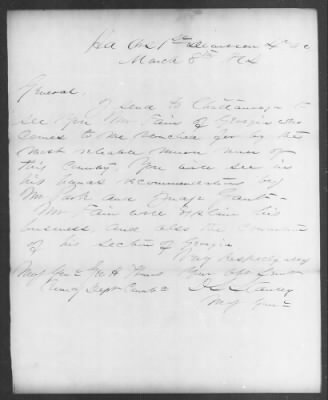 Hd Qrs 1st Division 4th A C
March 8th 64
General.
I send to Chattanooga to
see you Mr Fain of Georgia who
comes to me vouched for by the
most reliable Union men of
this County. You will see in
his papers recommendations by
Mr and Judge Gaut-
Mr Fain will explain his
business, and also the condition
of his section of Georgia
Very Respectfully
Maj Genl Geo H Thomas Your Obt Servt
Comdg Dept Cumbd D S Stanley
Maj Genl